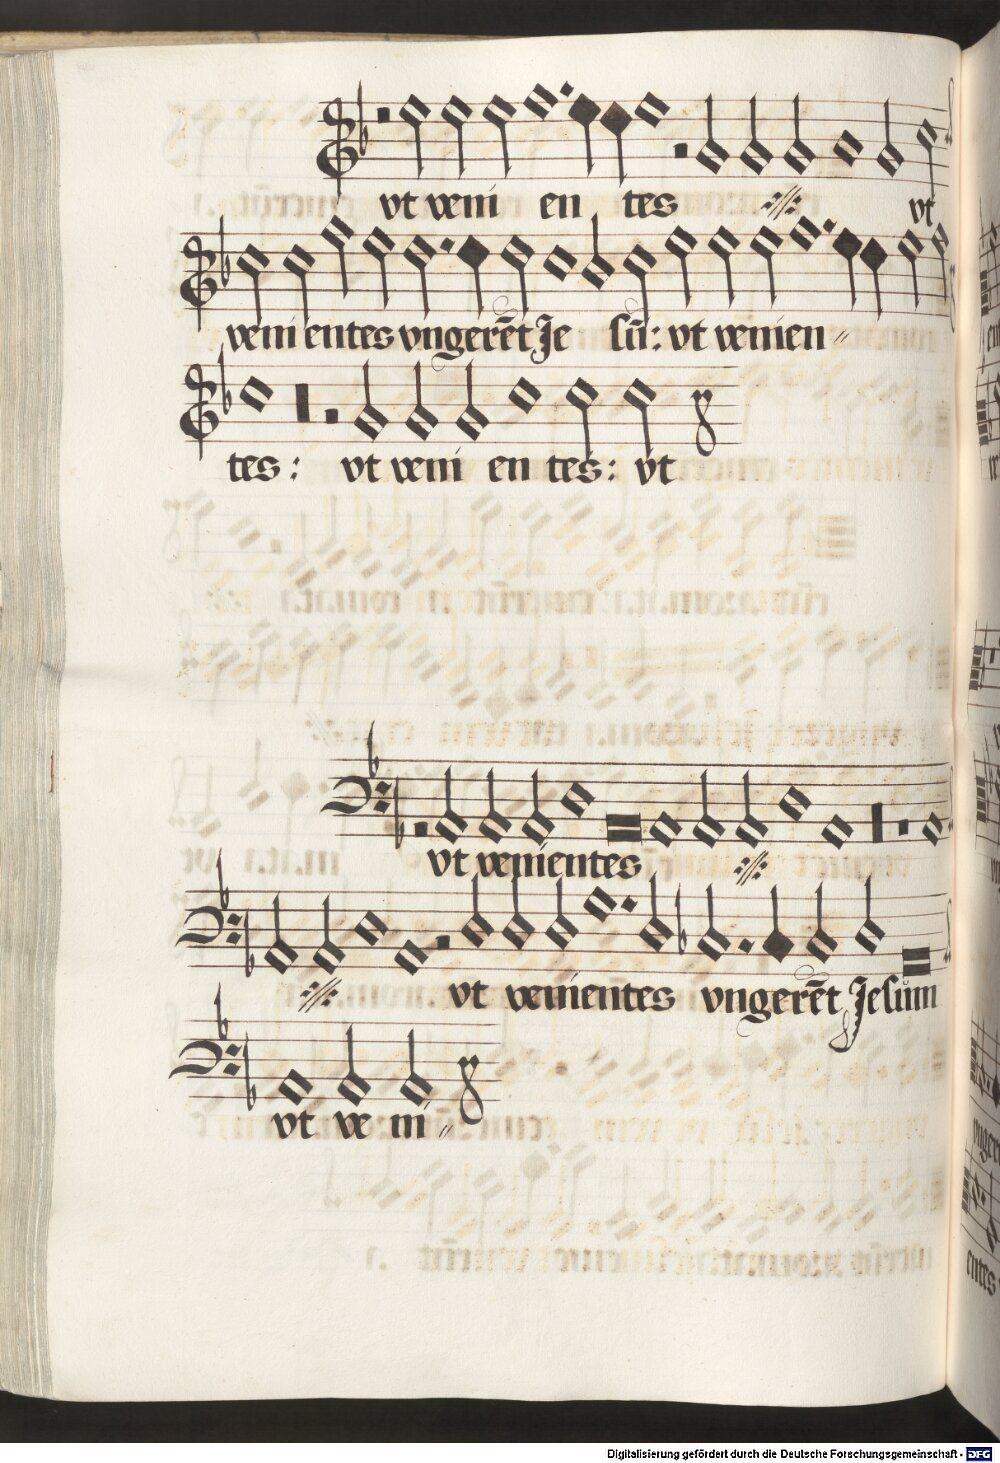 vt veni en tes vt
veni entes vngerēt Je sū: vt venien
tes: vt veni en tes: vt
vt venientes
vt venientes vngerēt Jesum
vt ve ni
Digitalisierung gefördert durch die Deutsche Forschungsgemeinschaft - DFG